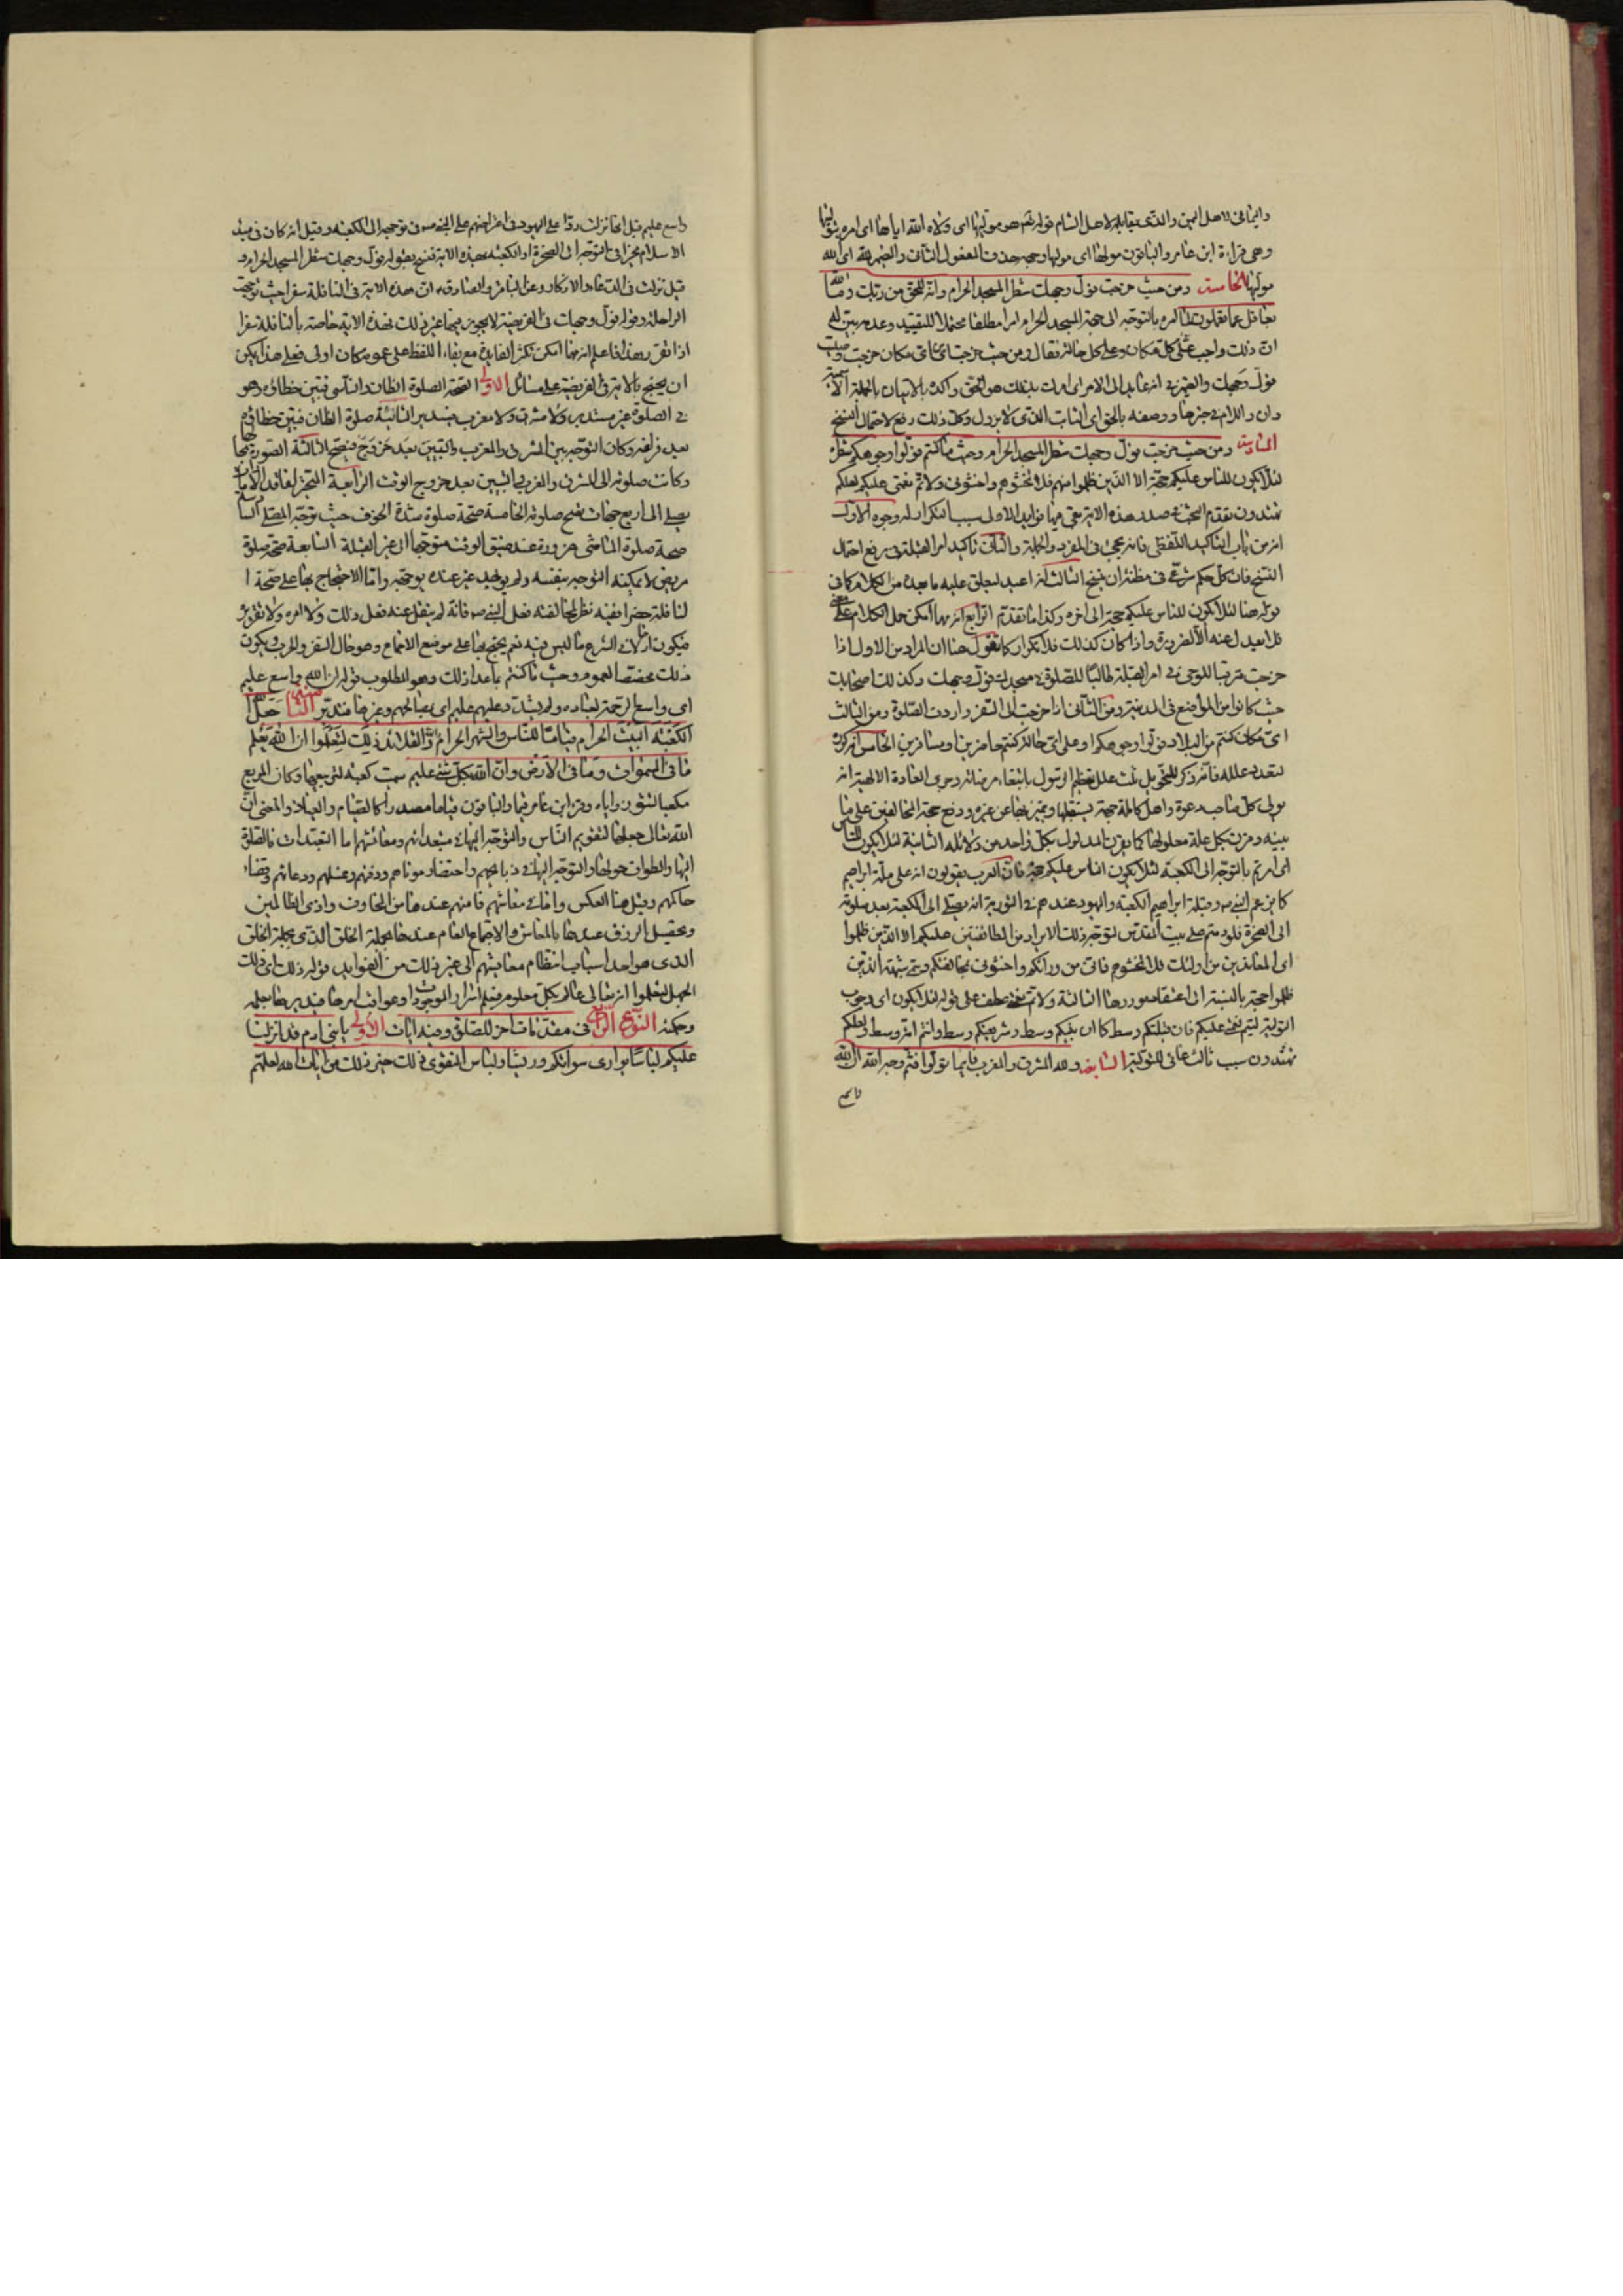 واليمانى لاهل اليمن والذى يقابله لاهل الشام قوله نعم هو موليها اى ولاه الله اياها اى امره بتوليها
وهى قراءة ابن عامر والباقون موليها اى موليها وجهه حذف المفعول الثانى والضمير لله اى الله
موليها الخامسة ومن حيث خرجت فول وجهك شطر المسجد الحرام وانه للحق من ربك وما الله
بغافل عما تعملون لما امره بالتوجه الى جهة المسجد الحرام امرا مطلقا محتملا للتقييد وعدمه بين له
ان ذلك واجب على كل مكان وعلى كل حالة فقال ومن حيث خرجت اى من اى مكان خرجت وحيث
فول وجهك والضمير فى انه عايد الى الامر اى امرك بذلك هو الحق واكده بالاتيان بالجملة الاسمية
وان واللام فى خبرها ووصفه بالحق اى الثابت الذى لا يزول وكل ذلك رفع لاحتمال النسخ
السادسة ومن حيث خرجت فول وجهك شطر المسجد الحرام وحيث ما كنتم فولوا وجوهكم شطره
لئلا يكون للناس عليكم حجة الا الذين ظلموا منهم فلا تخشوهم واخشونى ولاتم نعمتى عليكم ولعلكم
تهتدون تقدم البحث فى صدر هذه الاية بقى فيها فوايد الاولى سبب التكرار له وجوه الاول
انه من باب التاكيد اللفظى فانه يجئ فى المفرد والجملة والثانى تاكيد امر القبلة فى رفع احتمال
النسخ فان كل حكم شرعى فى مظنة ان ينسخ الثالث انه اعيد ليعلق عليه ما بعده من الكلام كما فى
قوله هنا لئلا يكون للناس عليكم حجة الى اخره وكذا ما تقدم الرابع انه مهما امكن حمل الكلام على معنى
فلا يعدل عنه الا لضرورة واذا كان كذلك فلا تكرار كما نقول هنا ان المراد من الاول اذا
خرجت مترقبا للوحى فى امر القبلة طالبا للصلوة فى مسجدك فول وجهك وكذلك اصحابك
حيث كانوا من المواضع فى المدينة ومن الثانى اذا خرجت الى السفر واردت الصلوة ومن الثالث
اى مكان كنتم من البلاد فولوا وجوهكم او على اى حالة كنتم حاضرين او مسافرين الخامس انه كرره
لتعدد علله فانه ذكر للتحويل ثلث علل تعظيم الرسول بابتغاء مرضاته وجرى العادة الالهية انه
يولى كل صاحب دعوة واهل كل ملة جهة يستقبلها ويتميز بها عن غيره ودفع حجة المخالفين على ما
بينه وقرن بكل علة معلولها كما يقرن المدلول بكل واحد من دلائله الثانية لئلا يكون للناس
اى امرتم بالتوجه الى الكعبة لئلا يكون للناس عليكم حجة فان العرب يقولون انه على ملة ابراهيم
كما يزعم النبى ص وقبلة ابراهيم الكعبة واليهود عندهم فى التورية انه يصلى الى الكعبة بعد صلوته
الى الصخرة فلو دمتم على بيت المقدس لتوجه ذلك الايراد من الطائفتين عليكم الا الذين ظلموا
اى المعاندين من اولئك فلا تخشوهم فانى من ورائكم واخشونى بمخالفتكم وسمى شبهة الذين
ظلموا حجة بالنسبة الى اعتقادهم وردها الثالثة ولاتم نعمتى عطف على قوله لئلا يكون اى وجوب
التولية ليتم نعمتى عليكم فان قبلتكم وسط كما ان نبيكم وسط وشريعتكم وسط وانتم امة وسط ولعلكم
تهتدون سبب ثالث غائى للتولية السابعة ولله المشرق والمغرب فاينما تولوا فثم وجه الله ان الله
واسع
واسع عليم قيل انها نزلت ردا على اليهود فى اعتراضهم على النبى ص فى توجهه الى الكعبة وقيل انه كان فى مبدء
الاسلام مخيرا فى التوجه الى الصخرة او الكعبة بهذه الاية فنسخ بقوله فول وجهك شطر المسجد الحرام و
قيل نزلت فى الدعاء والاذكار وعن الباقر والصادق ان هذه الاية فى النافلة سفرا حيث توجهت
الراحلة وقوله فول وجهك فى الفريضة لا يجوز فيها غير ذلك فهذه الاية خاصة بالنافلة سفرا
اذا تقرر هذا فاعلم انه مهما امكن تكثر الفايدة مع بقاء اللفظ على عمومه كان اولى فعلى هذا يمكن
ان يحتج بالاية فى الفريضة على مسائل الاولى صحة الصلوة الظان والناسى فتبين خطاؤه وهو
فى الصلوة غير مستدبر ولا مشرق ولا مغرب فيستدير الثانية صلوة الظان فتبين خطاؤه
بعد فراغه وكان التوجه بين المشرق والمغرب والتبين بعد خروج فتصح الثالثة الصورة بحالها
وكانت صلوته الى المشرق والمغرب والتبين بعد خروج الوقت الرابعة المتحير لفاقد الامارات
يصلى الى اربع جهات تصح صلوته الخامسة صحة صلوة شدة الخوف حيث توجه المصلى السادسة
صحة صلوة الماشى ضرورة عند ضيق الوقت متوجها الى غير القبلة السابعة صحة صلوة
مريض لا يمكنه التوجه بنفسه ولم يوجد عنده من يوجهه واما الاحتجاج بها على صحة ا
لنافلة حضرا ففيه نظر لمخالفته فعل النبى ص فانه لم ينقل عنه فعل ذلك ولا امره ولا تقريره
فيكون ادخالا فى الشرع ما ليس فيه نعم يحتج بها على موضع الاجماع وهو حال السفر والحرب ويكون
ذلك مخصصا لعموم وحيث ما كنتم بما عدا ذلك وهو المطلوب قوله ان الله واسع عليم
اى واسع الرحمة لعباده ولم يشدد عليهم عليم اى بمصالحهم وغيرها فتدبر الثامنة جعل الله
الكعبة البيت الحرام قياما للناس والشهر الحرام والهدى والقلائد ذلك لتعلموا ان الله يعلم
ما فى السموات وما فى الارض وان الله بكل شئ عليم سميت كعبة لتربيعها وكان المربع
مكعبا لنتوء زواياه وقرء ابن عامر قيما والباقون قياما مصدرا كالصيام والعياذ والمعنى ان
الله تعالى جعلها لتقويم الناس والتوجه اليها فى متعبداتهم ومعائشهم اما المتعبدات فالصلوة
اليها والطواف حولها والتوجه اليها فى ذبائحهم واحتضار موتاهم ودفنهم وغسلهم ودعائهم وقضاء
حاكمهم وقيل هنا العكس واما فى معاشهم فامنهم عندها من المخاوف واذى الظالمين
وتحصيل الرزق عندها بالمعاش والاجتماع العام عندها بجملة الخلق الذى يجلبة الخلق
الذى هو احد اسباب انتظام معايشهم الى غير ذلك من الفوايد قوله ذلك اى ذلك
الجعل لتعلموا انه تعالى عالم بكل معلوم فيعلم اسرار الموجودات وعواقب امرها فيدبرها بعلمه
وحكمته النوع الرابع فى مقدمات اخر للصلوة وفيه ايات الاولى يا بنى ادم قد انزلنا
عليكم لباسا يوارى سوآتكم وريشا ولباس التقوى ذلك خير ذلك من ايات الله لعلهم